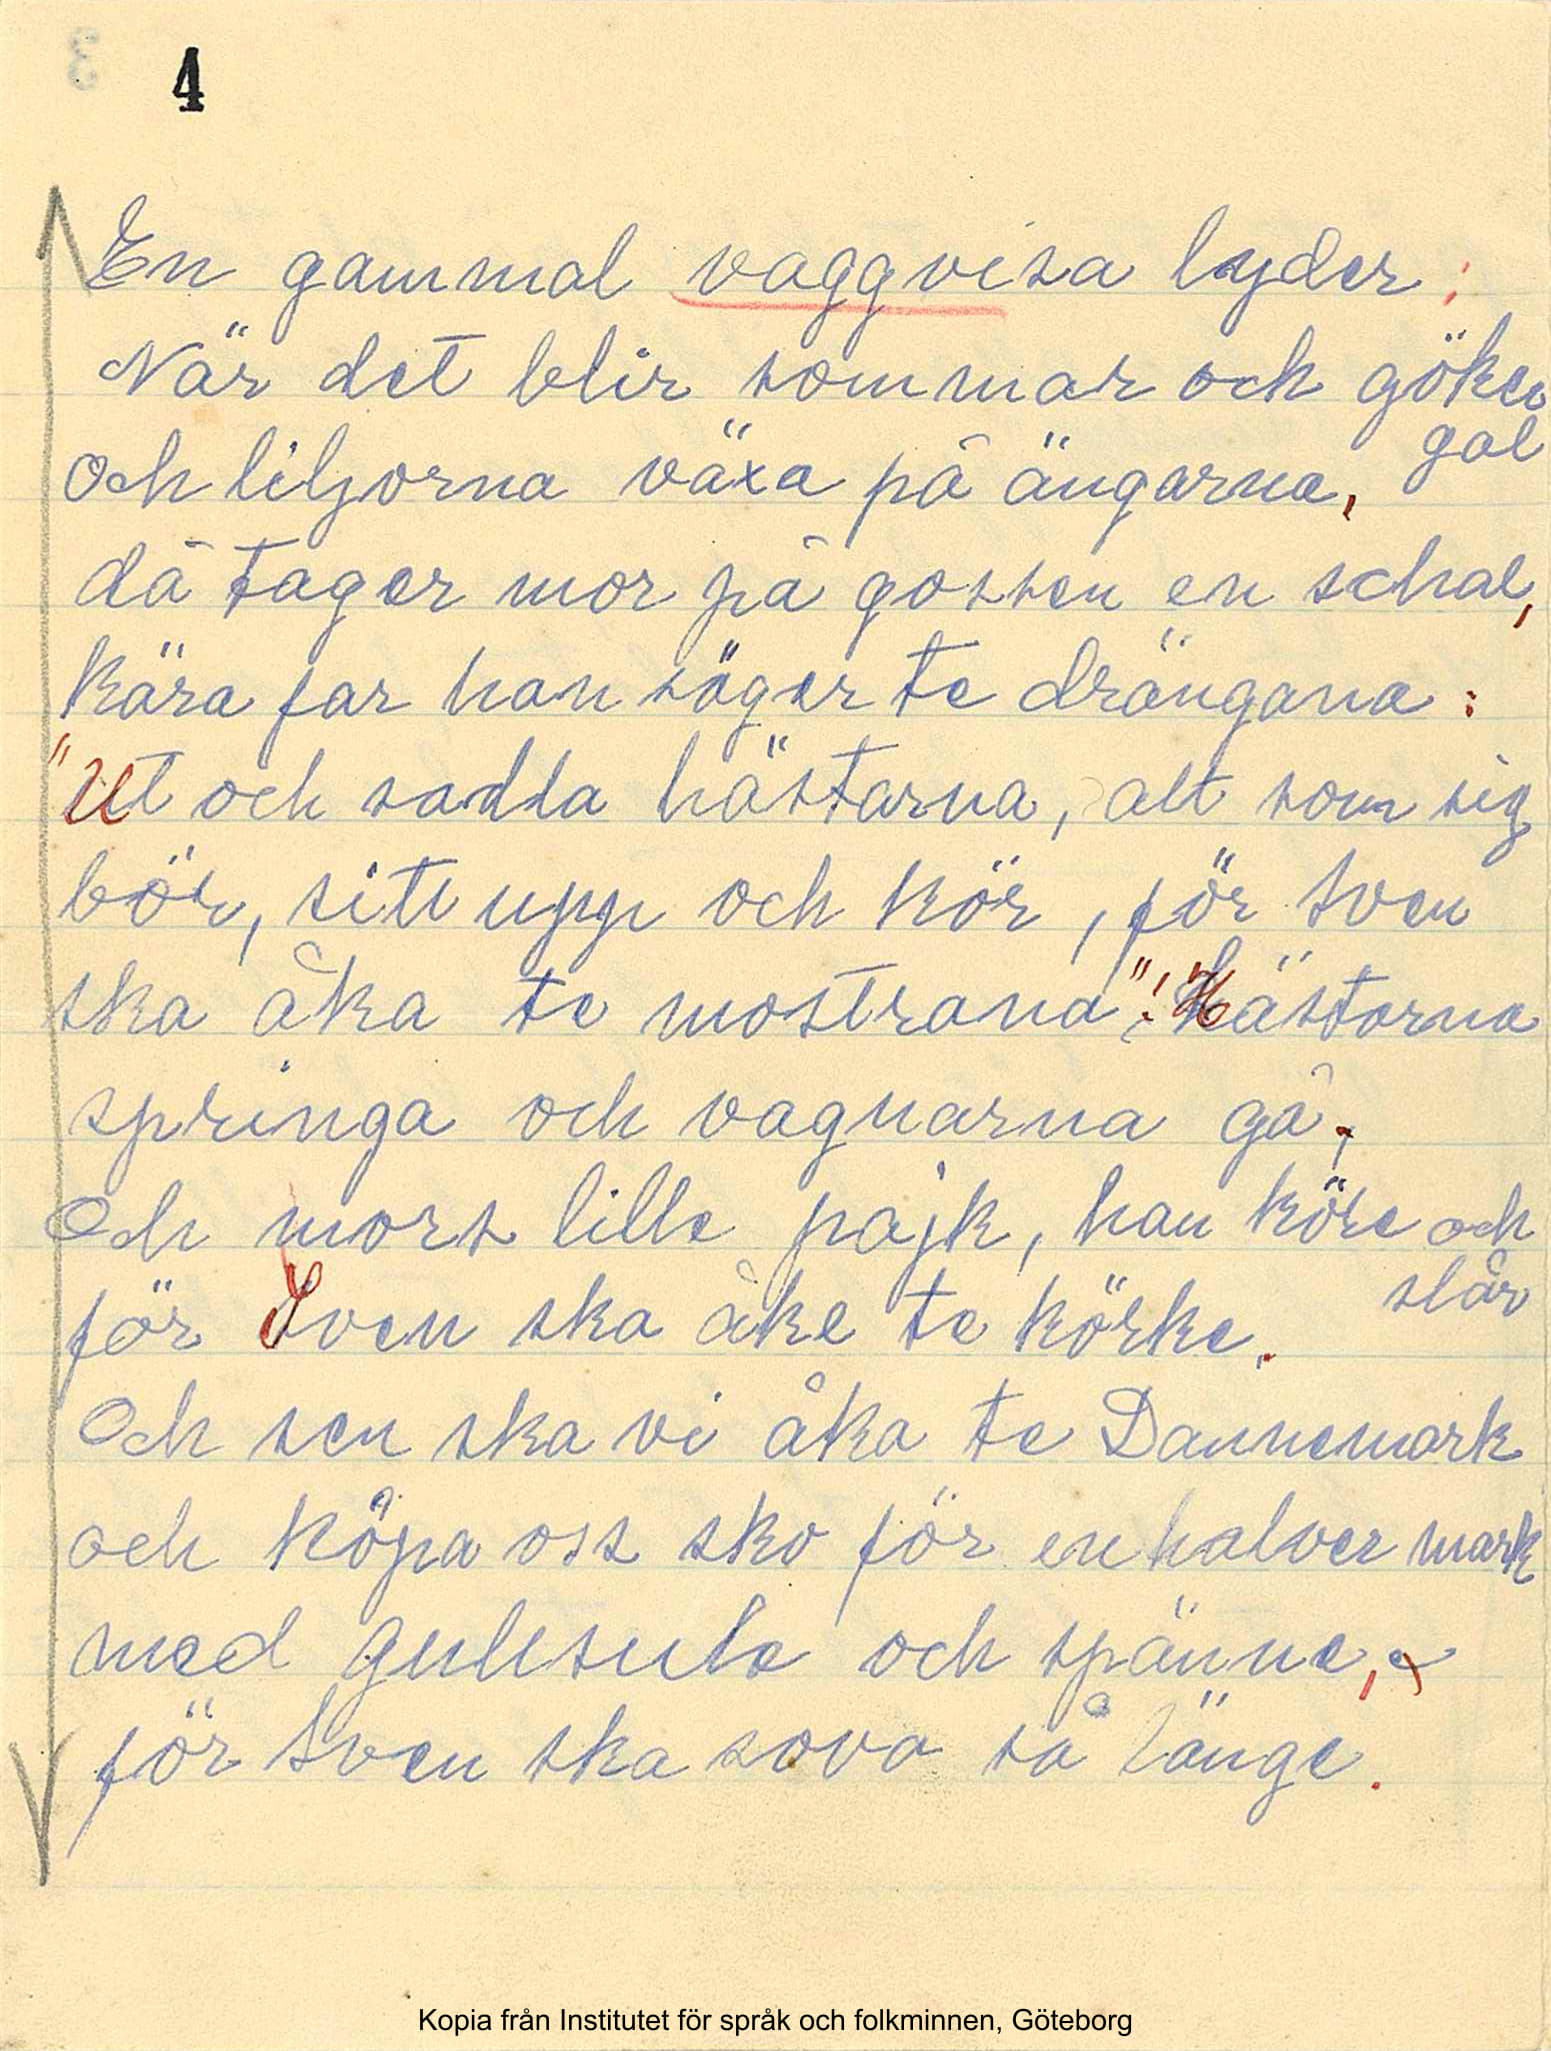 4
En gammal vaggvisa lyder:
När det blir sommar och göken
gal
och liljorna växa på ängarna,
då tager mor på gossen en schal,
kära far han säger te drängana:
"Ut och sadla hästarna, alt som sig
bör, sitt upp och kör, för Sven
ska åka te mostrana"! Hästarna
springa och vagnarna gå,
Och mors lille pajk, han köre och
slår
för Sven ska åke te körke.
Och sen ska vi åka te Dannemark
och köpa oss sko för en halver mark
med gullsule och spänne,
för Sven ska sova så länge.
Kopia från Institutet för språk och folkminnen, Göteborg